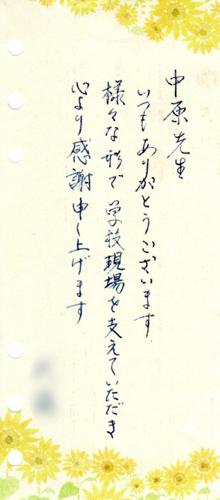 中原先生
いつもありがとうございます
様々な形で学校現場を支えていただき
心より感謝申し上げます